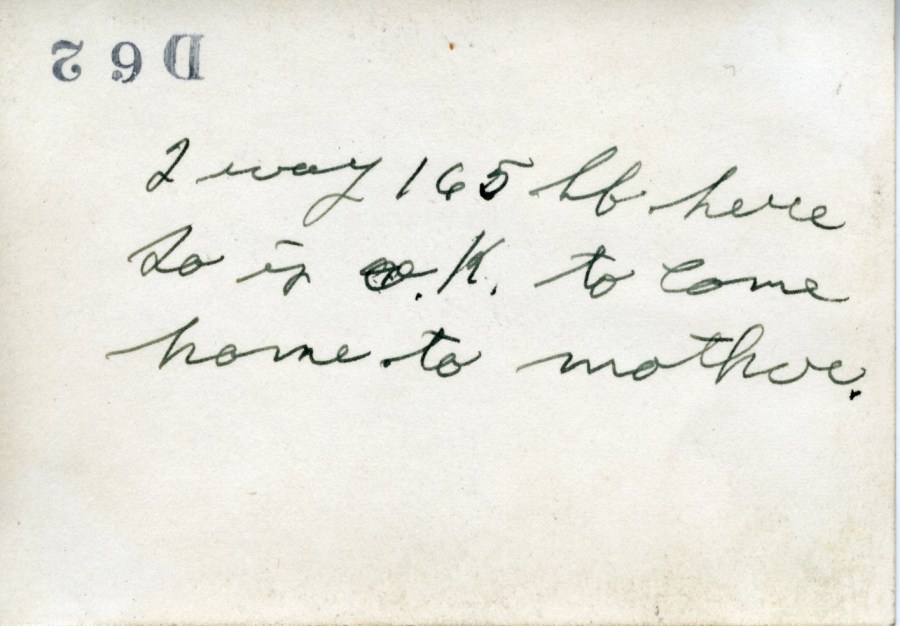 D62
I way 165 lb. here
So is o.K. to come
home to mother.